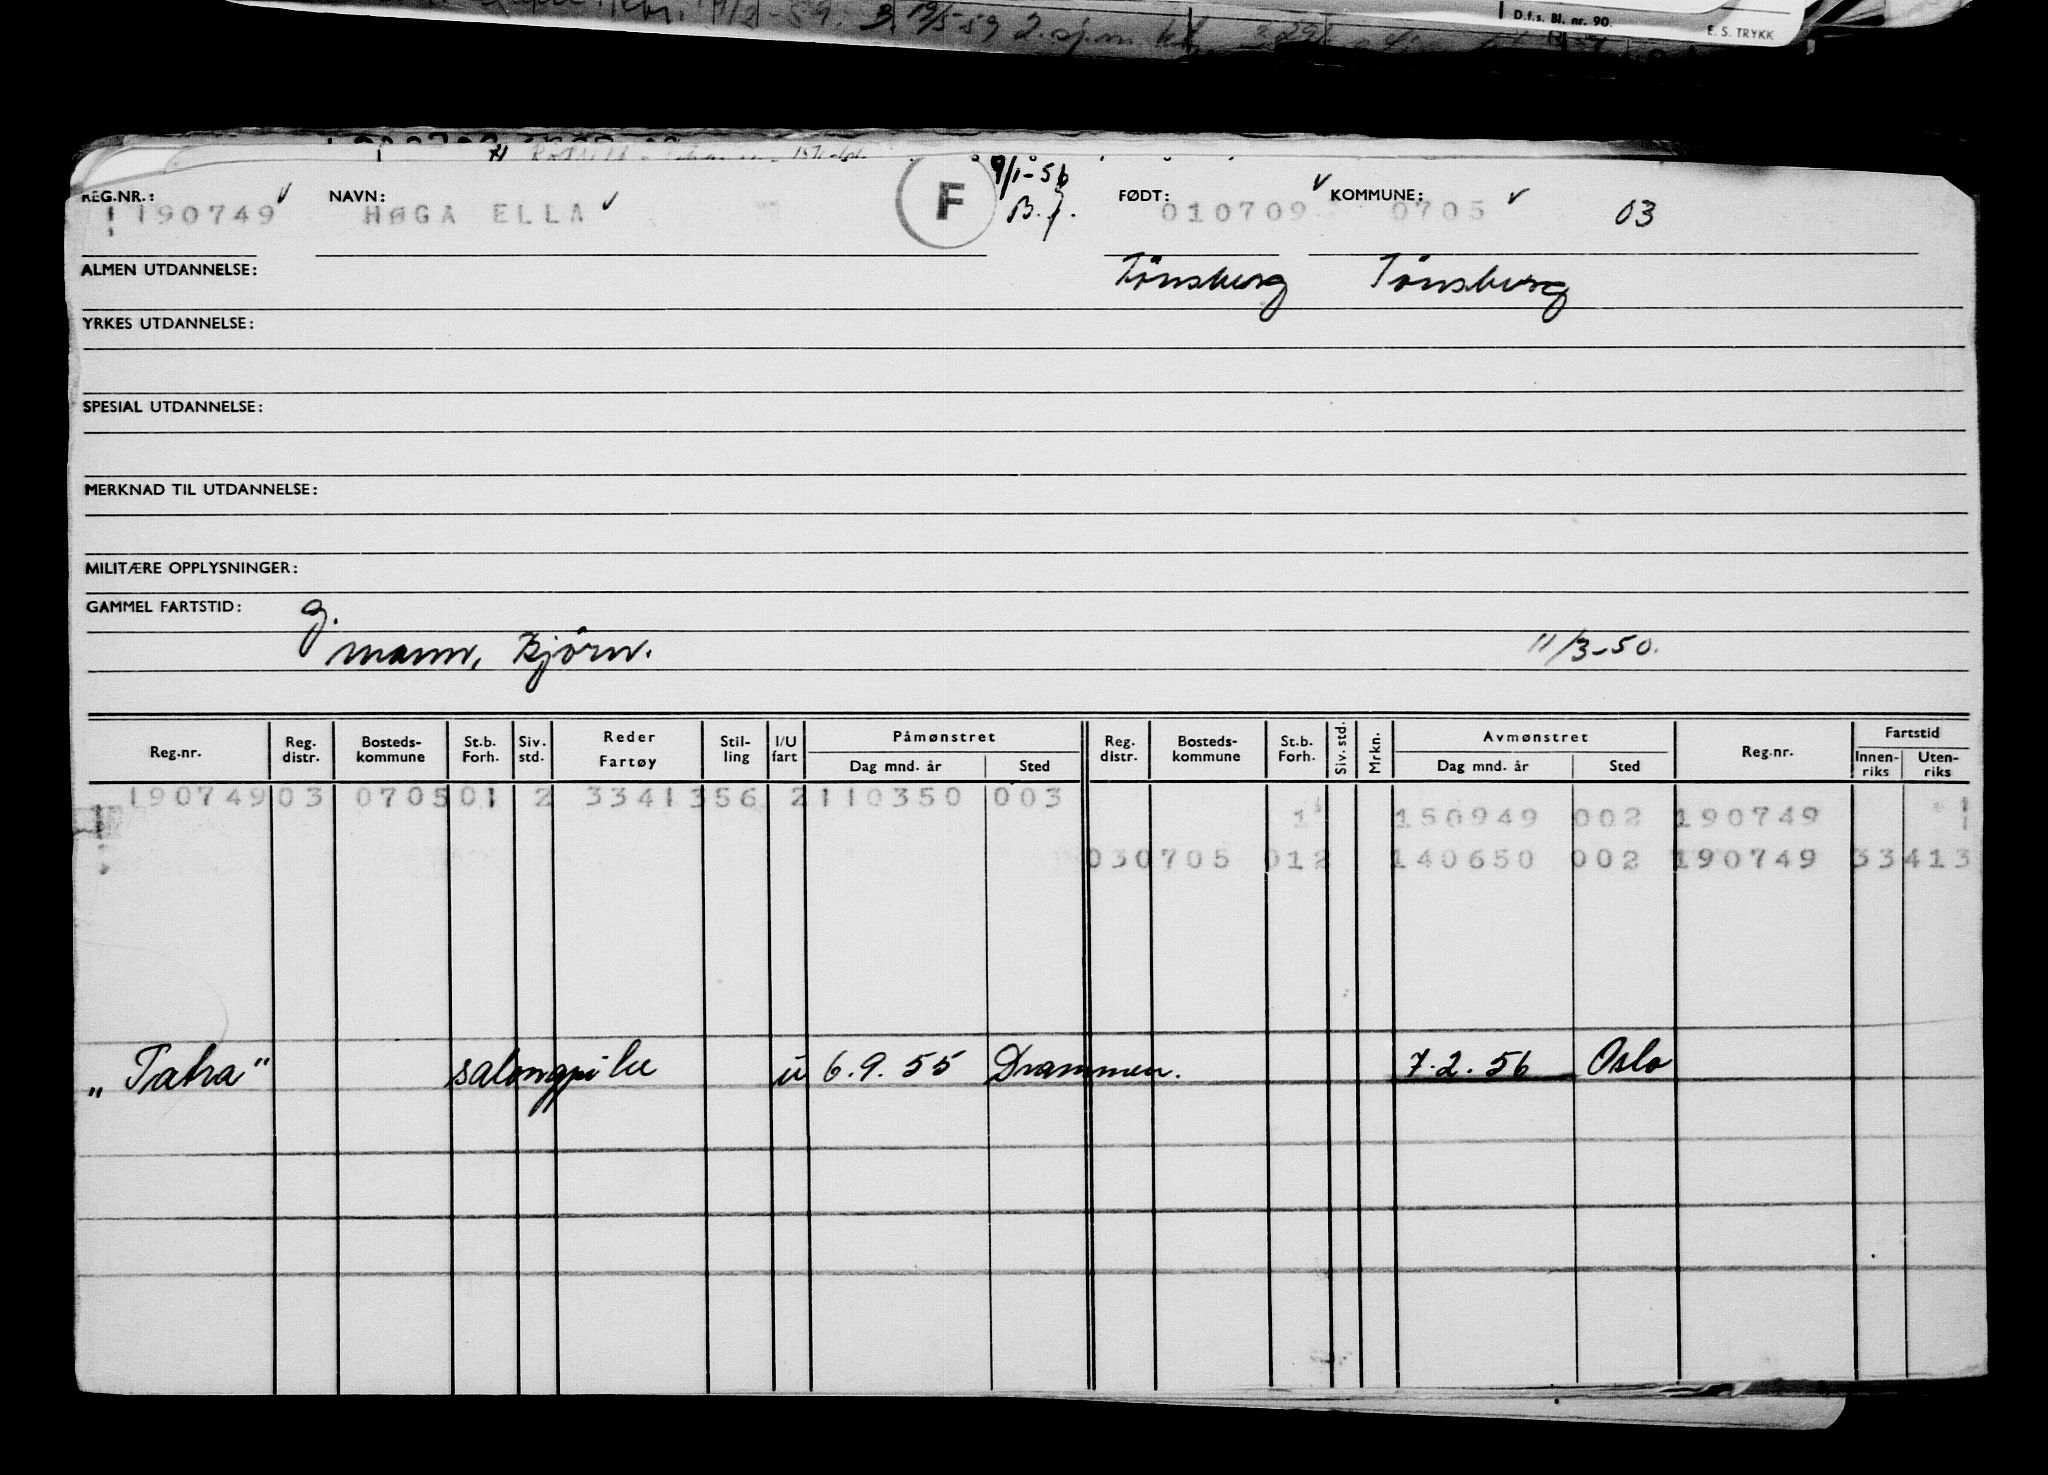 D.f.s. Bl. nr. 90.
E. S. TRYKK
19/5-59 2.
9/1-56
REG.NR.: NAVN: F FØDT: KOMMUNE:
190749 HØGA ELLA B.f. 010709 0705 03
ALMEN UTDANNELSE: Tönsberg Tönsberg
YRKES UTDANNELSE:
SPESIAL UTDANNELSE:
MERKNAD TIL UTDANNELSE:
MILITÆRE OPPLYSNINGER:
GAMMEL FARTSTID: g.
mann, Björn. 11/3-50.
Reg.nr. Reg. distr. Bosteds-kommune St.b. Forh. Siv. std. Reder Fartøy Stil-ling I/U fart Påmønstret Dag mnd. år Sted Reg. distr. Bosteds-kommune St.b. Forh. Siv. std. Mrkn. Avmønstret Dag mnd. år Sted Reg.nr. Fartstid Innen-riks Uten-riks
190749 03 0705 01 2 33413 56 2 110350 003
1 150949 002 190749
03 0705 01 2 140650 002 190749 33413
„Tatra" salongpike u 6.9.55 Drammen. 7.2.56 Oslo